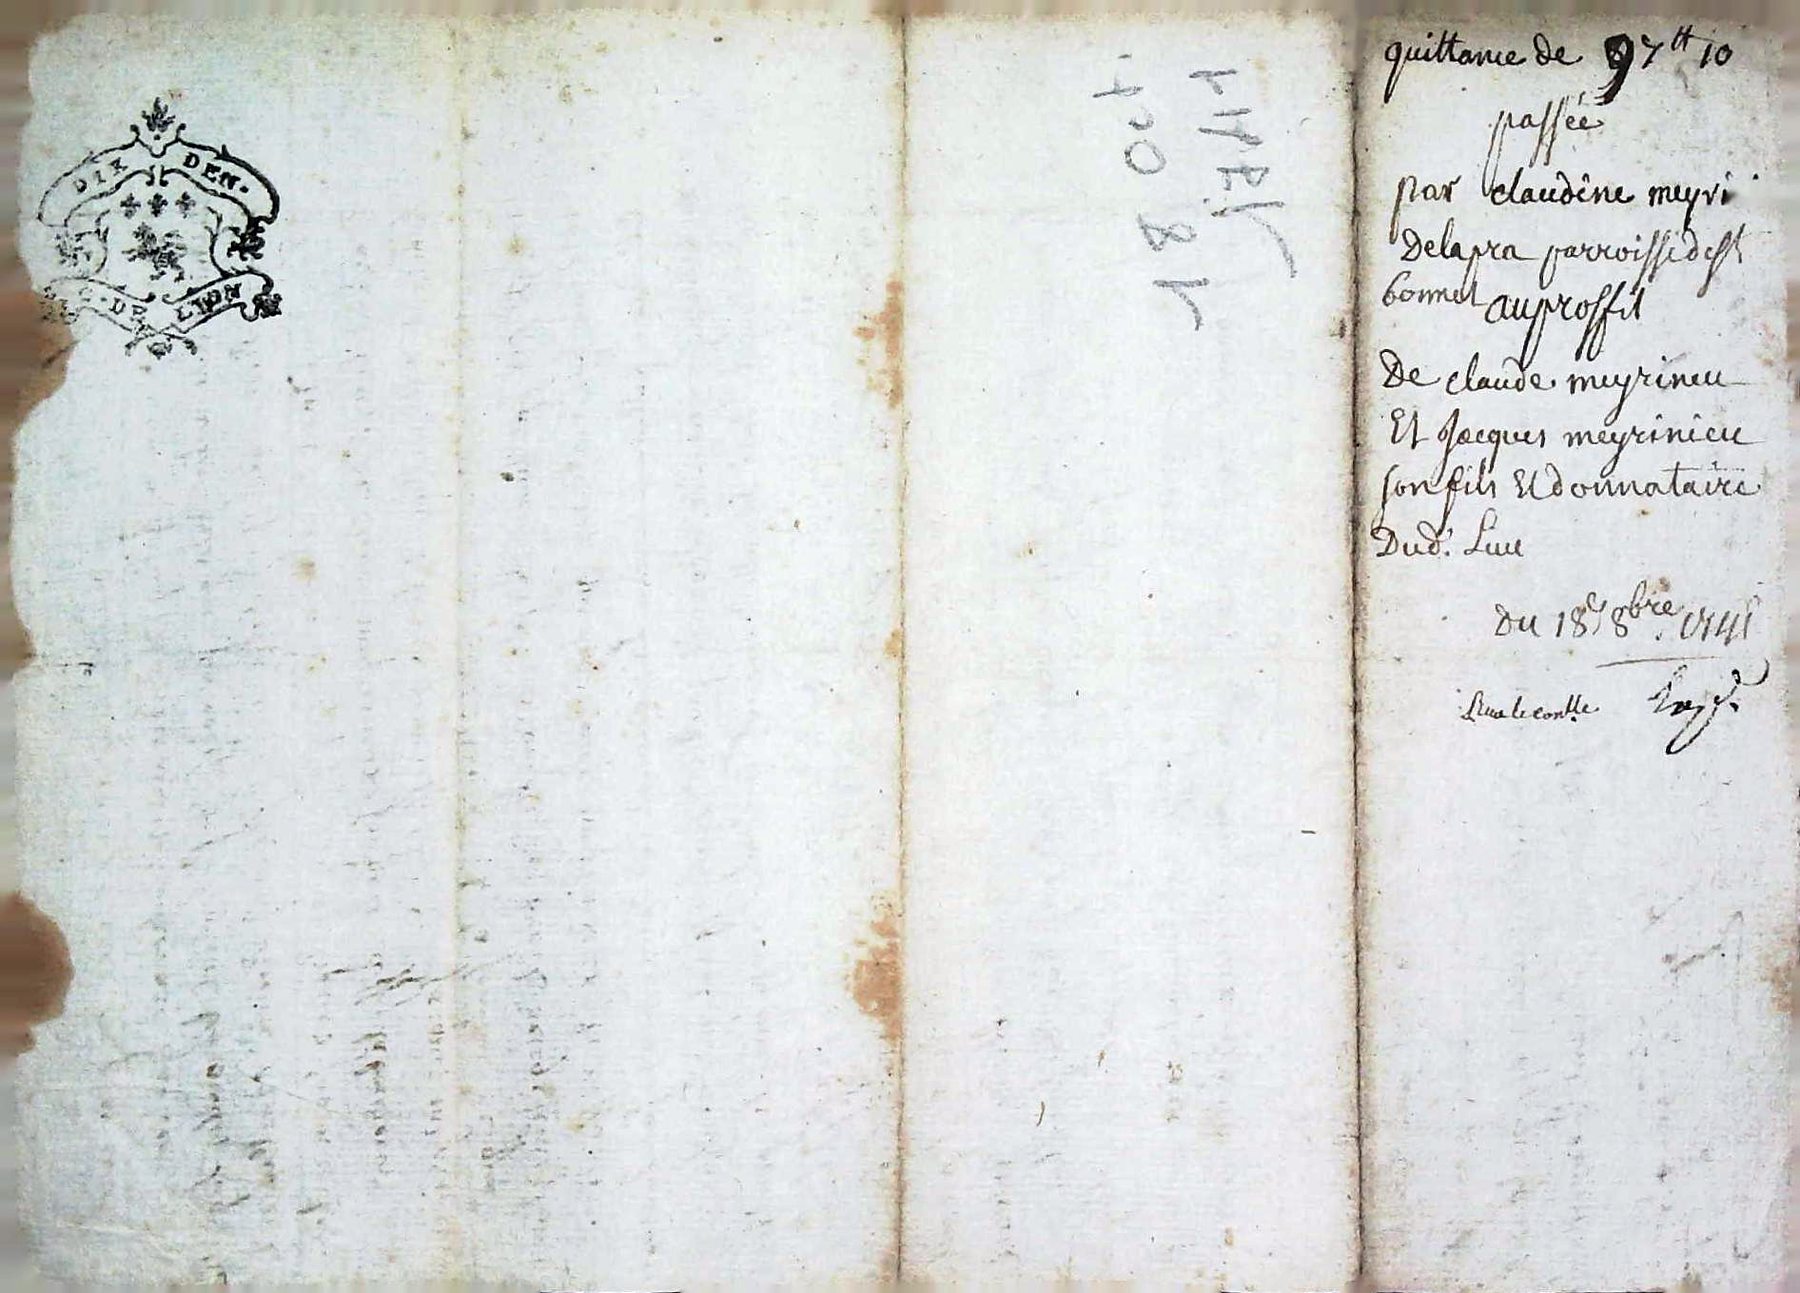 DIX DEN.
G. DE LION
quittance de 97tt 10
passée
par claudine meyri
Delapra parroisse de St
bonnet auproffit
De claude meyrineu
Et Jacques meyrinieu
son fils Et donnataire
Dud. Lieu
Du 18e 8bre 1741